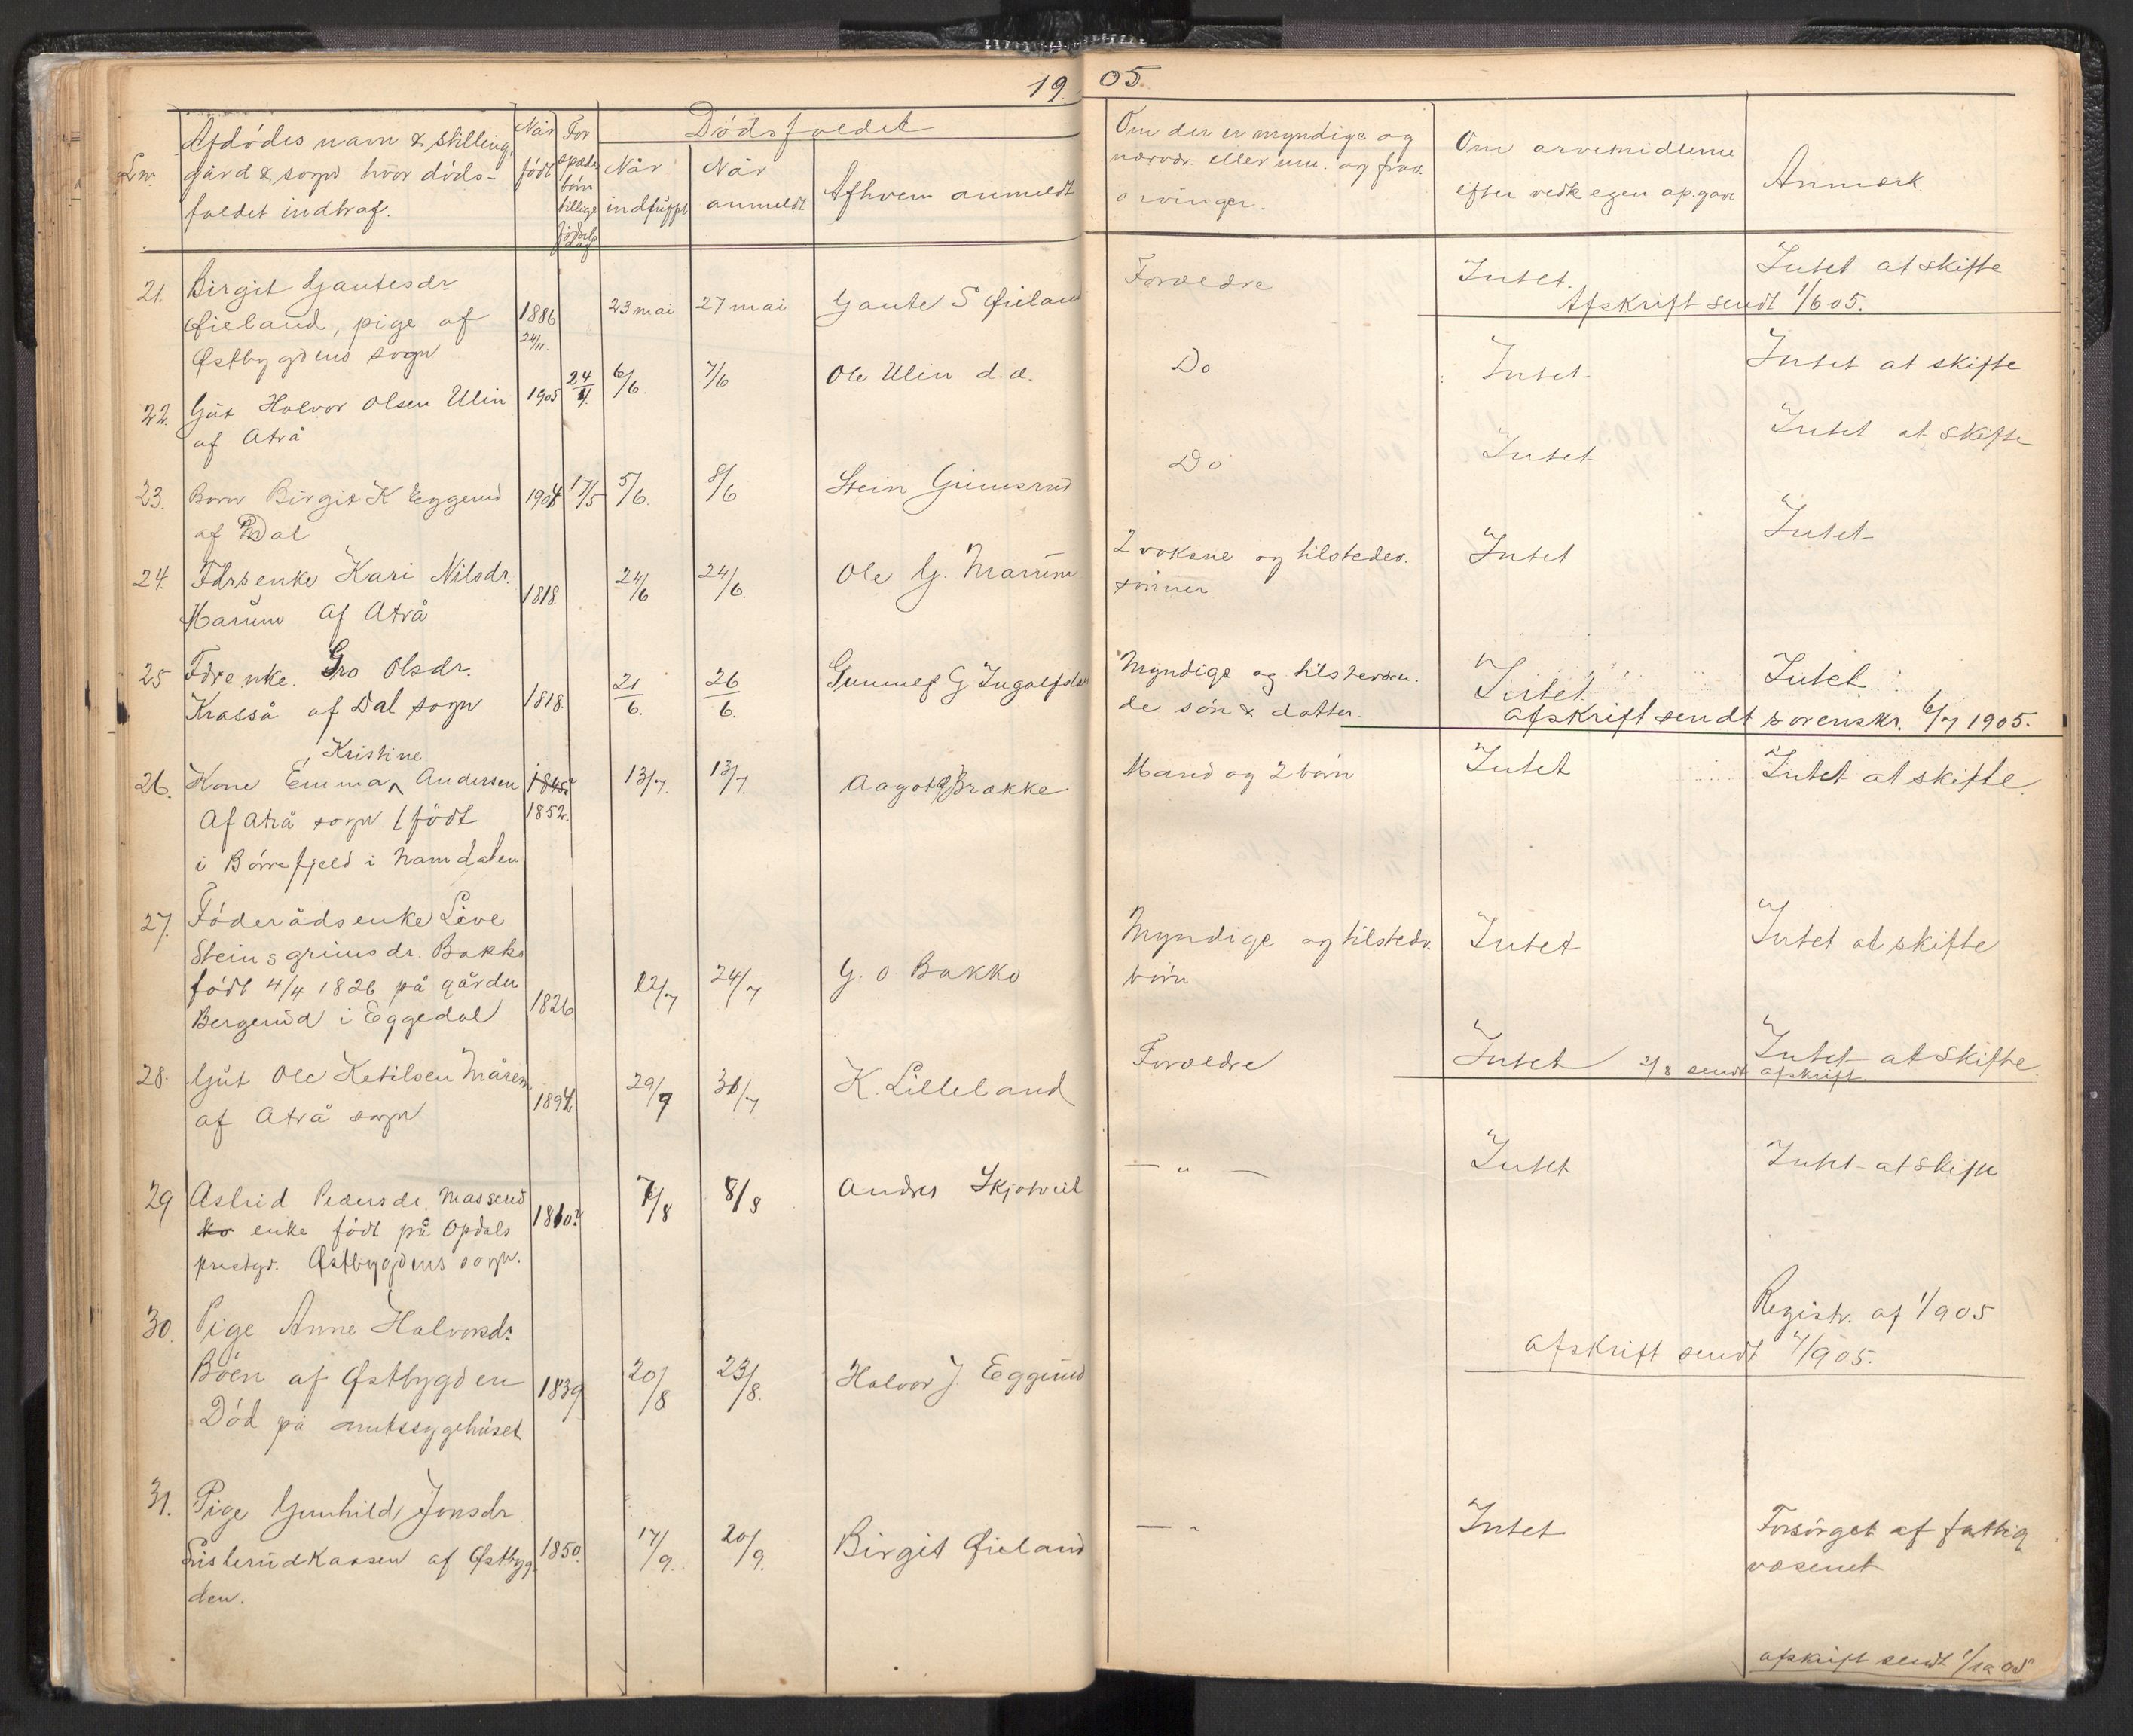 1905.
Lnr.
Afdödes navn & stilling,
gård & sogn hvor döds-
faldet indtraf.
Når
födt
For
spæde
börn
tillige
födsels
dag
Dödsfaldet
Når
indtruffet
Når
anmeldt
Af hvem anmeldt
Om der er myndige og
nærvær. eller um. og frav.
arvinger.
Om arvemidlerne
efter vedk egen opgave
Anmærk.
21. Birgit Gautesdr 1886 23 mai 27 mai Gaute S Øieland Forældre Intet. Intet at skifte
Øieland, pige af 24/11.
Østbygdens sogn
Afskrift sendt 1/6 05.
22. Gut Halvor Olsen Ulin 1905 24/4. 6/6. 7/6 Ole Ulin d. æ. Do Intet Intet at skifte
af Atrå
23. Barn Birgit K Eggerud 1904 17/5 5/6. 8/6 Stein Grimsrud Do Intet Intet at skifte
af Dal
24. Fdrsenke Kari Nilsdr. 1818. 24/6 24/6. Ole G. Marum 2 voksne og tilstedev. Intet Intet
Marum af Atrå sönner
25 Fdrenke. Gro Olsdr. 1818. 21/6. 26/6. Gunnulf G Ingolfsla Myndige og tilsteværen- Intet Intet
Krasså af Dal sogn de sön & datter.
afskrift sendt sorenskr. 6/7 1905.
Kristine
26. Kone Emma Andersen 1845? 13/7. 13/7. Aagot Brække Mand og 2 börn Intet Intet at skifte.
Af Atrå sogn (födt 1852.
i Börrefjeld i Namdalen
27. Föderådsenke Live
Steinsgrimsdr. Bakko Myndige og tilstedv. Intet Intet at skifte
födt 4/4 1826 på gården 1826 12/7 24/7 G. O Bakko börn
Bergerud i Eggedal
28. Gut Ole Ketilsen Mårem 1894 29/7 31/7 K. Lilleland Forældre Intet Intet at skifte.
af Atrå sogn
2/8 sendt afskrift.
29 Astrid Pedersdr. Masserud 1810? 7/8 8/8 Andres Skjotveit — " — Intet Intet at skifte
enke födt på Opdals
prestgr. Østbygdens sogn.
30. Pige Anne Halvorsdr. Registr. af 1/9 05
Böen af Østbygden 1839 20/8 23/8. Halvor J. Eggerud
Död på amtssygehuset
afskrift sendt 4/9 05.
31. Pige Gunhild Jonsdr Intet Forsörget af fattig
Listerudkaasen af Østbyg- 1850. 17/9. 20/9. Birgit Øieland — " væsenet
den.
afskrift sendt 1/10 05